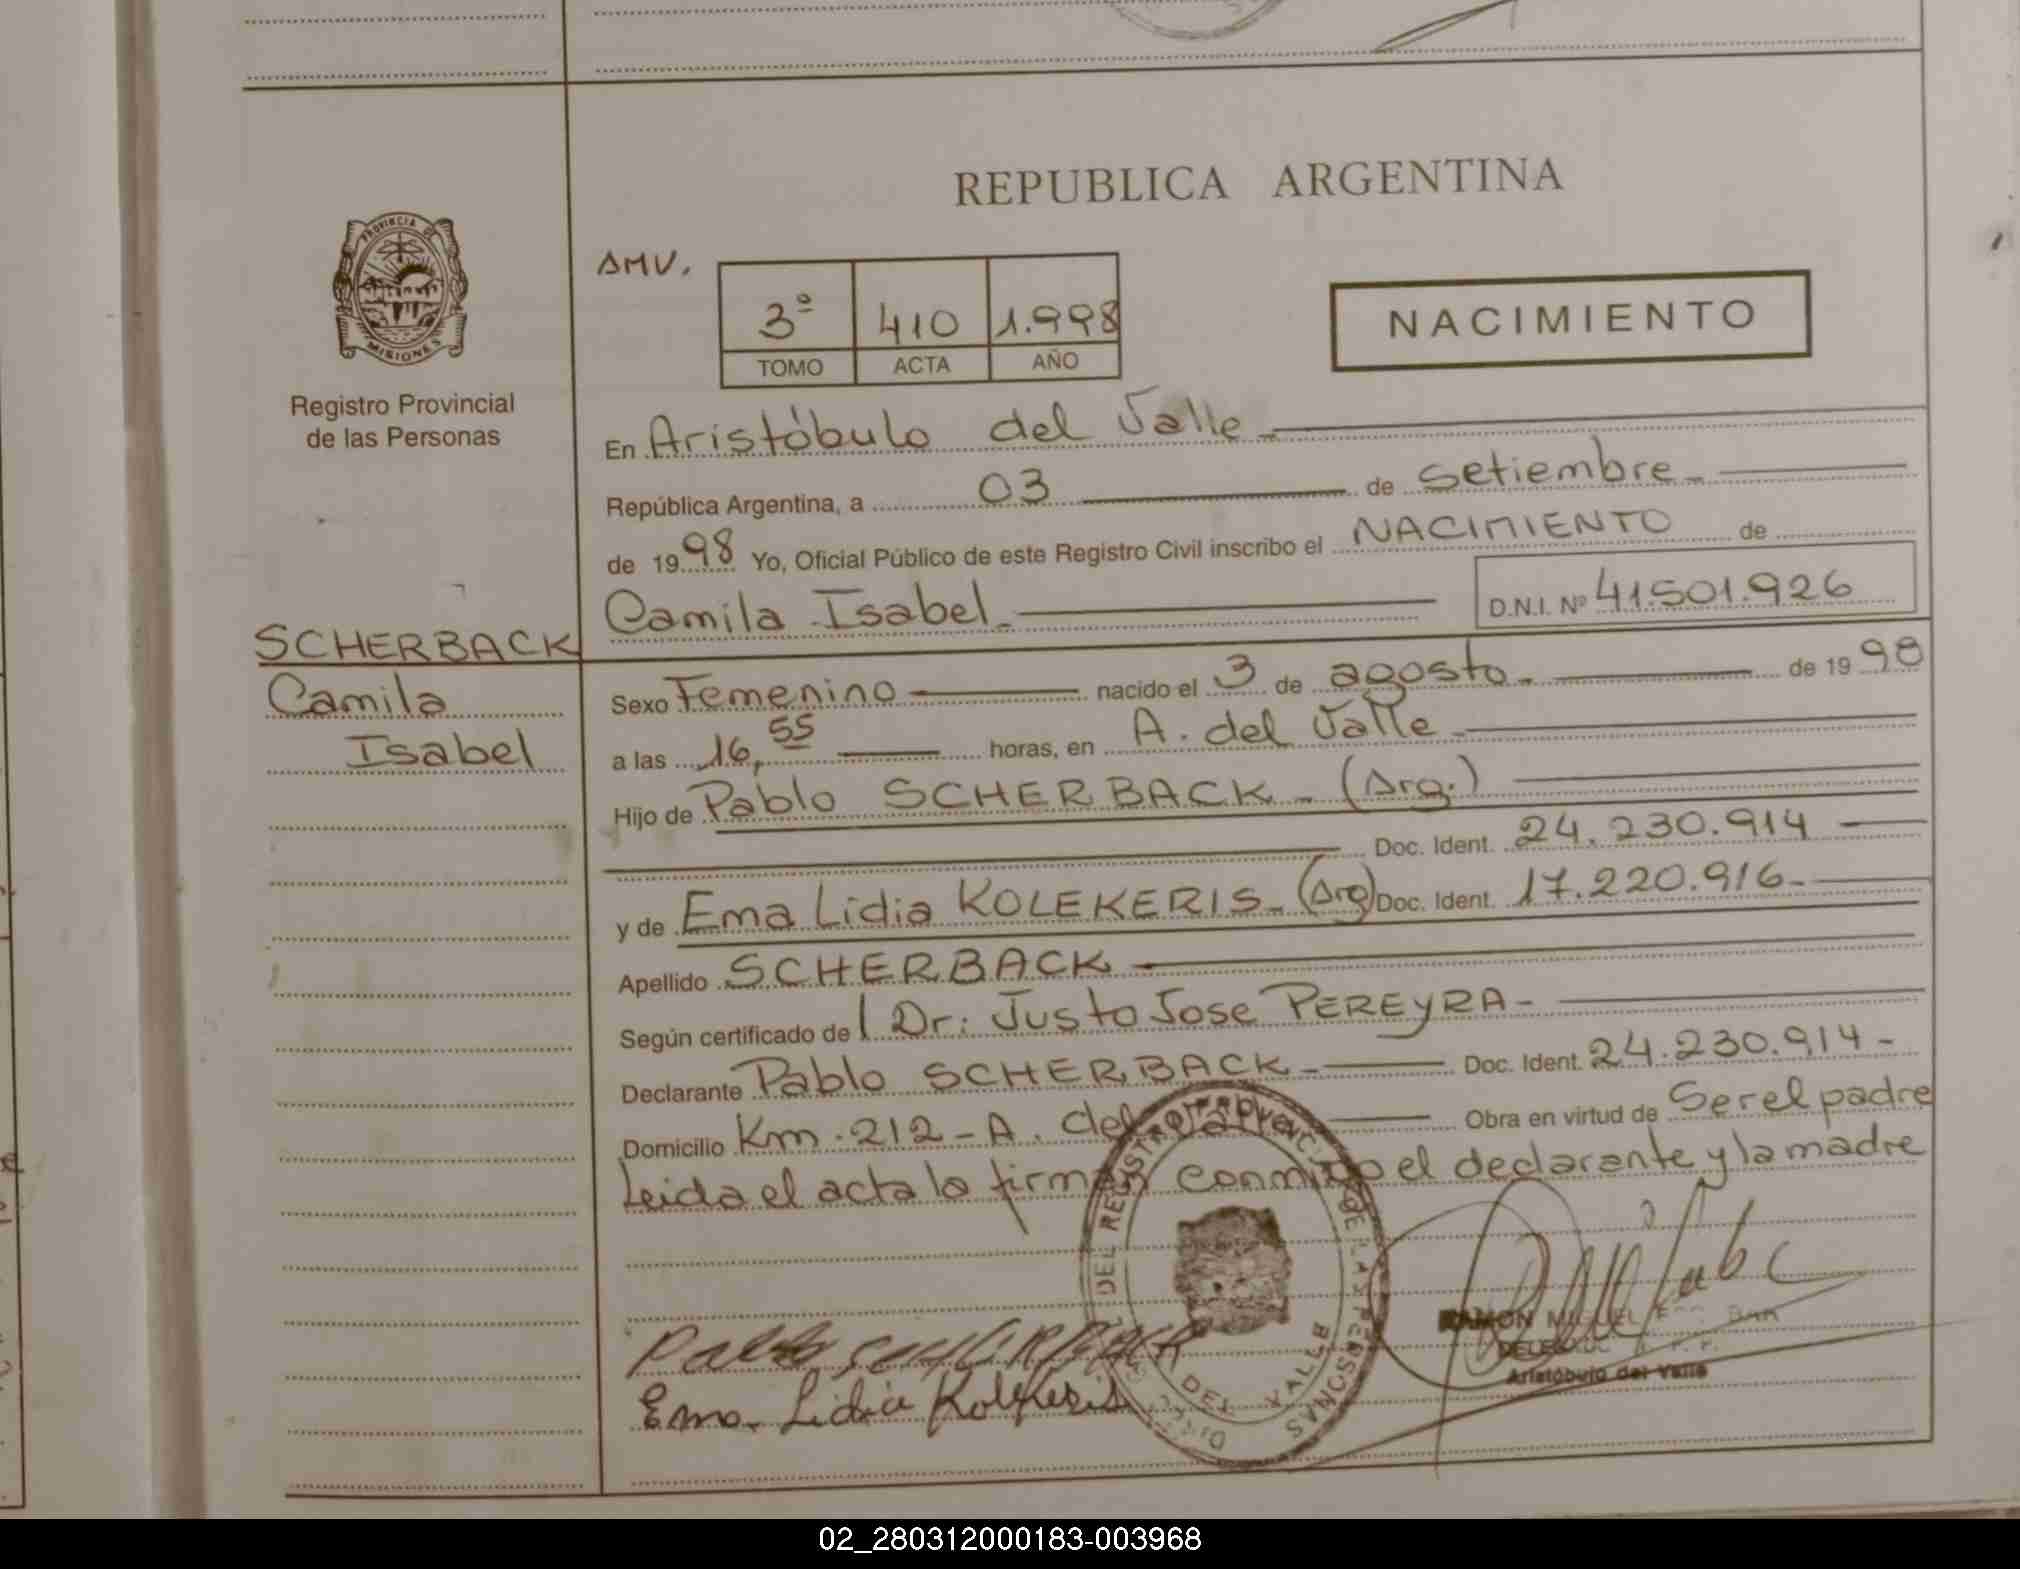 REPUBLICA ARGENTINA
PROVINCIA DE
MISIONES
Registro Provincial
de las Personas
AMV.
3º 410 1.998
TOMO ACTA AÑO
NACIMIENTO
En Aristóbulo del Valle
República Argentina, a 03 de Setiembre
de 1998 Yo, Oficial Público de este Registro Civil inscribo el NACIMIENTO de
Camila Isabel D.N.I. Nº 41.501.926
SCHERBACK
Camila
Isabel
Sexo Femenino nacido el 3 de agosto de 1998
a las 16,55 horas, en A. del Valle
Hijo de Pablo SCHERBACK - (Arg.)
Doc. Ident. 24.230.914
y de Ema Lidia KOLEKERIS - (Arg) Doc. Ident. 17.220.916
Apellido SCHERBACK
Según certificado de Dr. Justo Jose PEREYRA
Declarante Pablo SCHERBACK Doc. Ident. 24.230.914
Domicilio Km. 212 - A. del Valle Obra en virtud de Ser el padre
Leida el acta la firman conmigo el declarante y la madre
DEL REGISTRO PROVINCIAL DE LAS PERSONAS
DEL VALLE
Pablo SCHERBACK
Ema Lidia Kolekeris
RAMON MIGUEL
Aristóbulo del Valle
02_280312000183-003968